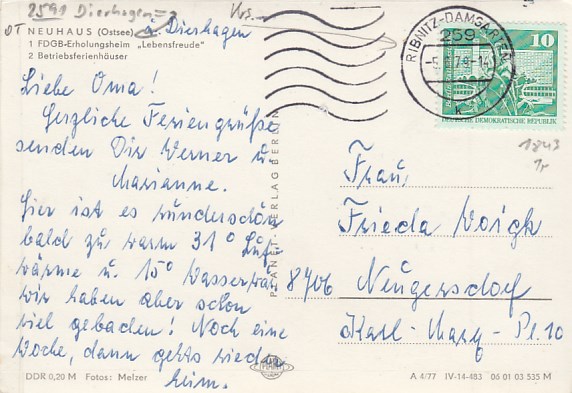 2591 Dierhagen
OT
NEUHAUS (Ostsee)
1 FDGB-Erholungsheim „Lebensfreude"
2 Betriebsferienhäuser
Krs.
a. Dierhagen
RIBNITZ-DAMGARTEN
259
10
DEUTSCHE DEMOKRATISCHE REPUBLIK
1843
Liebe Oma!
Herzliche Feriengrüße
senden Dir Werner u.
Marianne.
Hier ist es wunderschön
bald zu warm 31° Luft
wärme u. 15° Wasserwär
wir haben aber schon
viel gebadet! Noch eine
Woche, dann gehts wieder
heim.
PLANET-VERLAG BERLIN
Frau,
Frieda Voigt
8706 Neugersdorf
Karl-Marx-Pl. 10
DDR 0,20 M Fotos: Melzer
A 4/77 IV-14-483 06 01 03 535 M